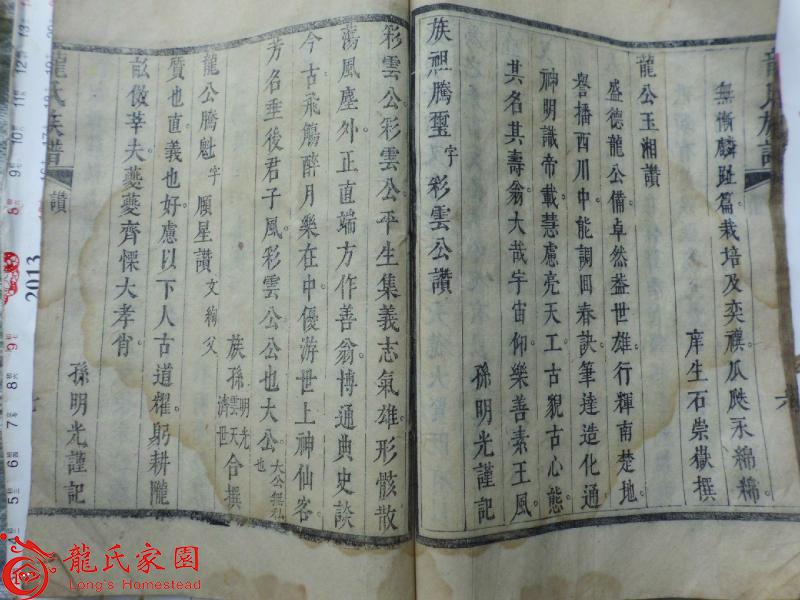 無慚麟趾篇栽培及奕禩瓜瓞永綿綿
庠生石崇嶽撰
龍公玉湘讚
盛德龍公備卓然葢世雄行輝南楚地
譽播西川中能調回春訣筆達造化通
神明識帝載慧慮亮天工古貌古心態
其名其壽翁大哉宇宙仰樂善素王風
孫明光謹記
族祖騰璽字彩雲公讚
彩雲公彩雲公平生集義志氣雄形骸散
蕩風塵外正直端方作善翁博通典史談
今古飛觴醉月樂在中優游世上神仙客
芳名垂後君子風彩雲公公也大公大公無私也
族孫明光雲天濟世合撰
龍公騰魁字願星讚文絢父
質也直義也好慮以下人古道耀躬耕隴
畝傚莘夫夔夔齊慄大孝肖
孫明光謹記
龍氏族譜
讚
龍氏族譜
六
2013
龍氏家園
Long's Homestead